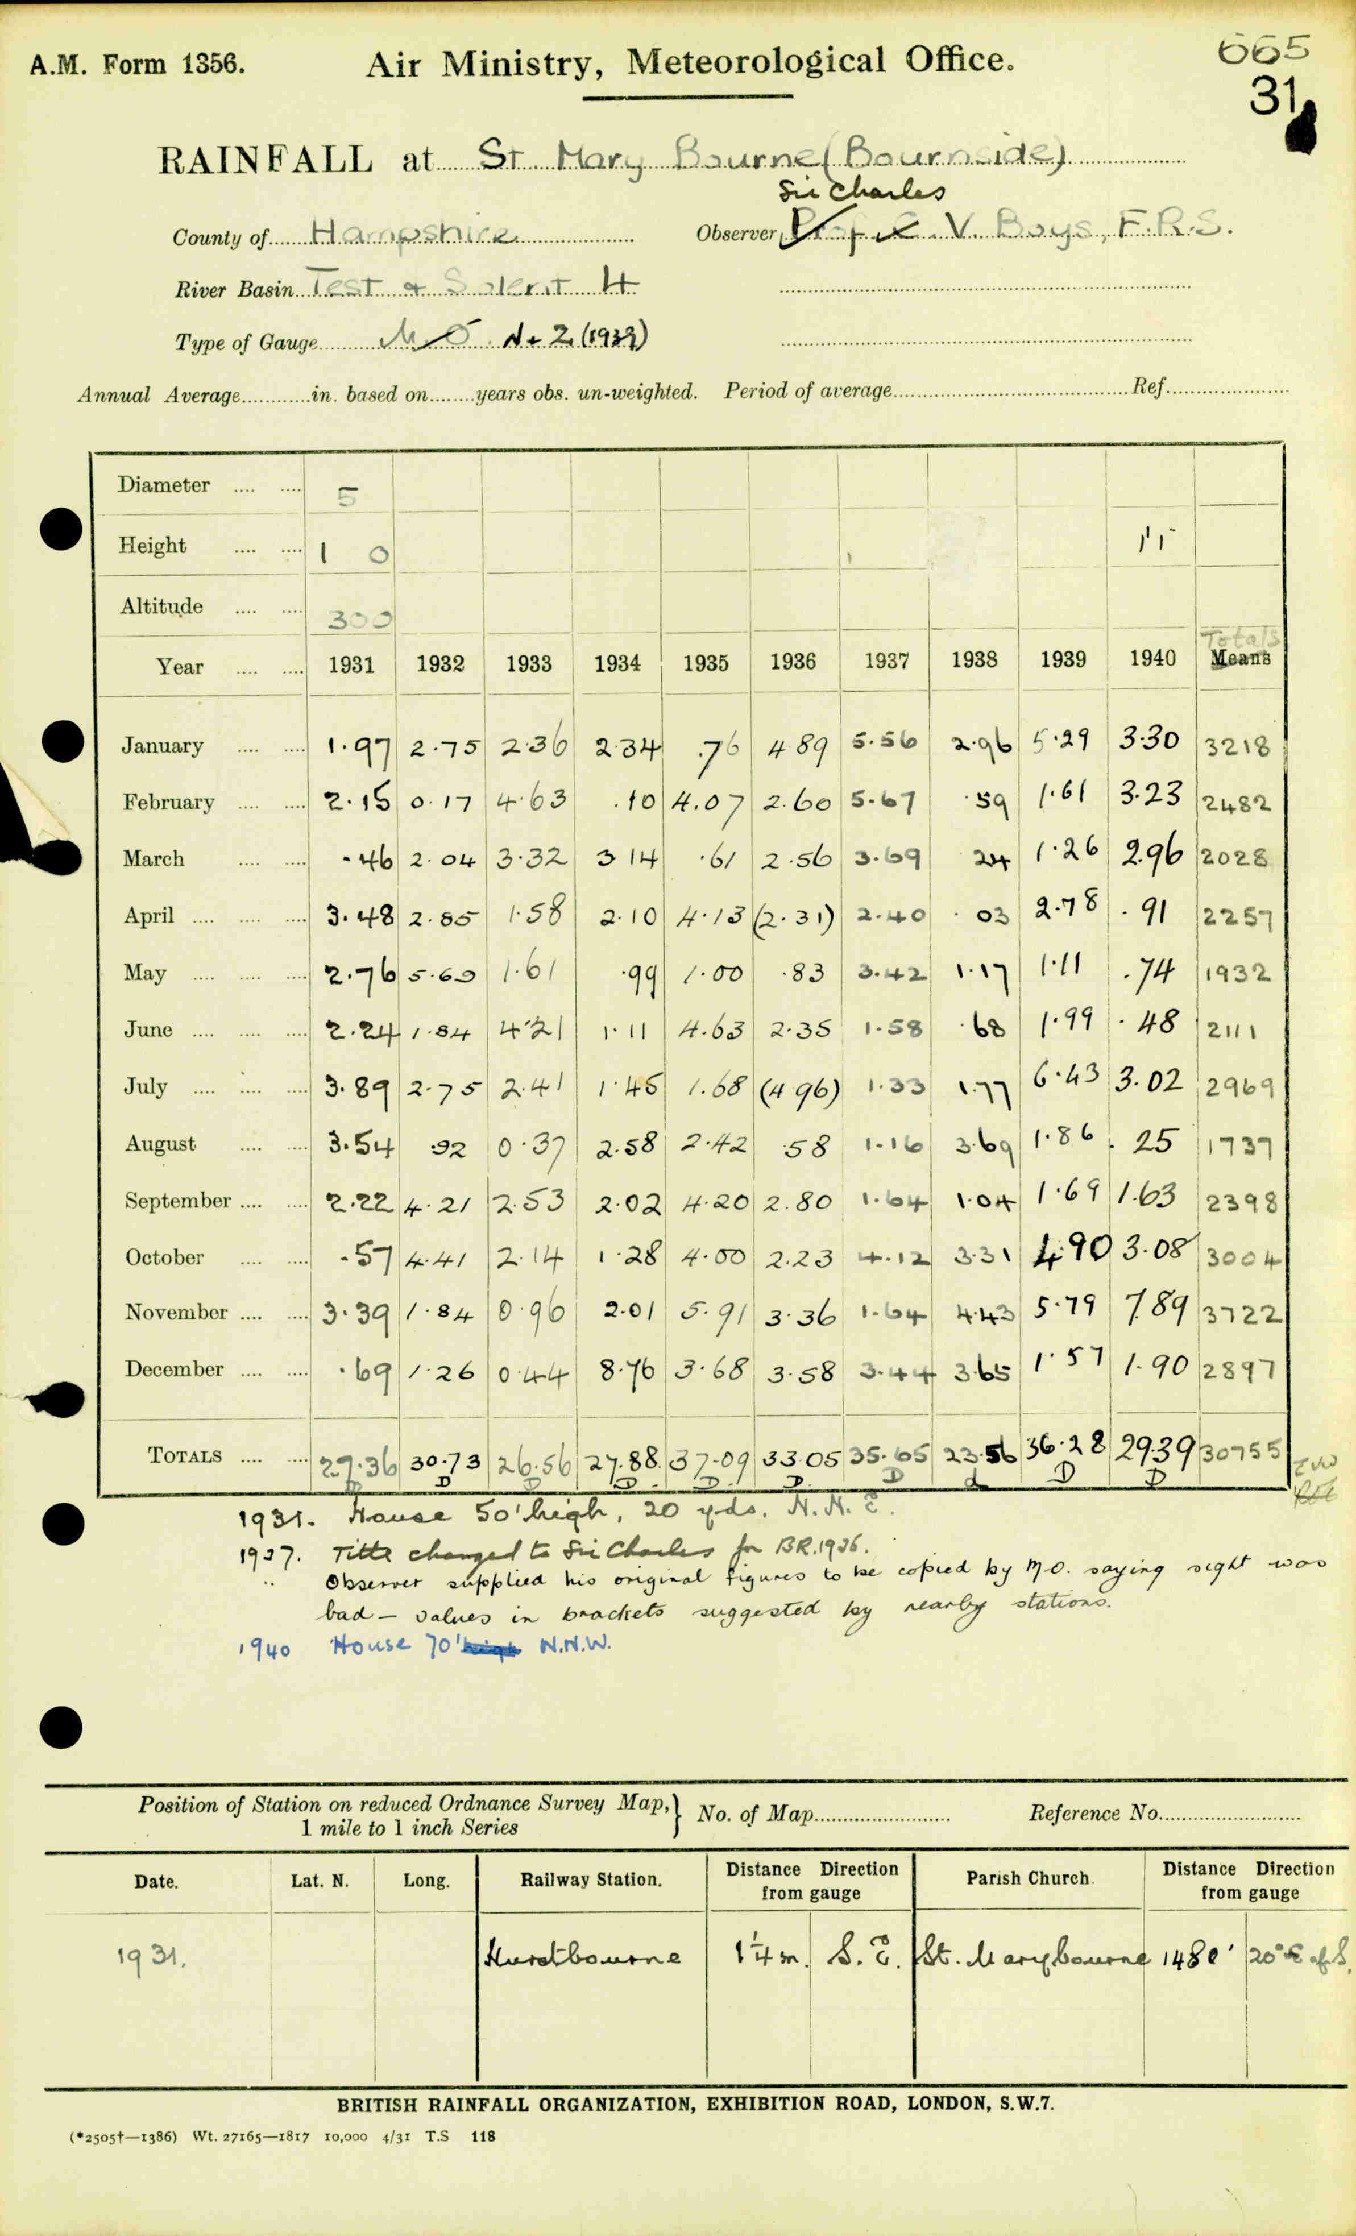 665
A.M. Form 1356. Air Ministry, Meteorological Office.
31
RAINFALL at St. Mary Bourne (Bournside)
Sir Charles
County of Hampshire Observer, Prof C. V. Boys, F.R.S.
River Basin Test & Solent 4
Type of Gauge MO. N+Z (1939)
Annual Average in. based on years obs. un-weighted. Period of average Ref.
Diameter 5
Height 1 0 1'1"
Altitude 300
Totals
Year 1931 1932 1933 1934 1935 1936 1937 1938 1939 1940 Means
January 1.97 2.75 2.36 2.34 .76 4.89 5.56 2.96 5.29 3.30 3218
February 2.15 0.17 4.63 .10 4.07 2.60 5.67 .59 1.61 3.23 2482
March .46 2.04 3.32 3.14 .61 2.56 3.69 24 1.26 2.96 2028
April 3.48 2.85 1.58 2.10 4.13 (2.31) 2.40 .03 2.78 .91 2257
May 2.76 5.69 1.61 .99 1.00 .83 3.42 1.17 1.11 .74 1932
June 2.24 1.84 4.21 1.11 4.63 2.35 1.58 .68 1.99 .48 2111
July 3.89 2.75 2.41 1.45 1.68 (4.96) 1.33 1.77 6.43 3.02 2969
August 3.54 .92 0.37 2.58 2.42 .58 1.16 3.69 1.86 .25 1737
September 2.22 4.21 2.53 2.02 4.20 2.80 1.64 1.04 1.69 1.63 2398
October .57 4.41 2.14 1.28 4.00 2.23 4.12 3.31 4.90 3.08 3004
November 3.39 1.84 0.96 2.01 5.91 3.36 1.64 4.43 5.79 7.89 3722
December .69 1.26 0.44 8.76 3.68 3.58 3.44 3.65 1.57 1.90 2897
TOTALS 27.36 30.73 26.56 27.88 37.09 33.05 35.65 23.56 36.28 29.39 30755
D D D D D D D d D D
1931. House 50' high, 20 yds. N.N.E.
1937. Title changed to Sir Charles for BR.1936.
" Observer supplied his original figures to be copied by M.O. saying sight was
bad — values in brackets suggested by nearby stations.
1940 House 70' high N.N.W.
Position of Station on reduced Ordnance Survey Map, } No. of Map Reference No.
1 mile to 1 inch Series
Date. Lat. N. Long. Railway Station. Distance Direction from gauge Parish Church. Distance Direction from gauge
1931. Hurstbourne 1¼ m. S.E. St. Marybourne 1480' 20° E of S.
BRITISH RAINFALL ORGANIZATION, EXHIBITION ROAD, LONDON, S.W.7.
(*2505†—1386) Wt. 27165—1817 10,000 4/31 T.S 118